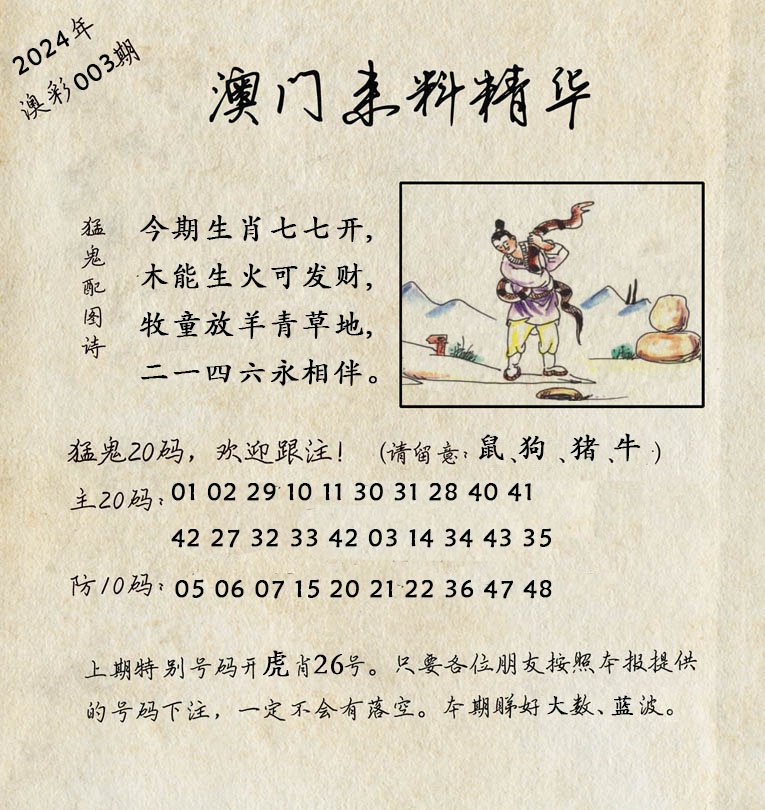 2024年
澳彩003期
澳门来料精华
猛鬼配图诗
今期生肖七七开，
木能生火可发财，
牧童放羊青草地，
二一四六永相伴。
猛鬼20码，欢迎跟注！（请留意：鼠、狗、猪、牛）
主20码：01 02 29 10 11 30 31 28 40 41
42 27 32 33 42 03 14 34 43 35
防10码：05 06 07 15 20 21 22 36 47 48
上期特别号码开虎肖26号。只要各位朋友按照本报提供
的号码下注，一定不会有落空。本期睇好大数、蓝波。